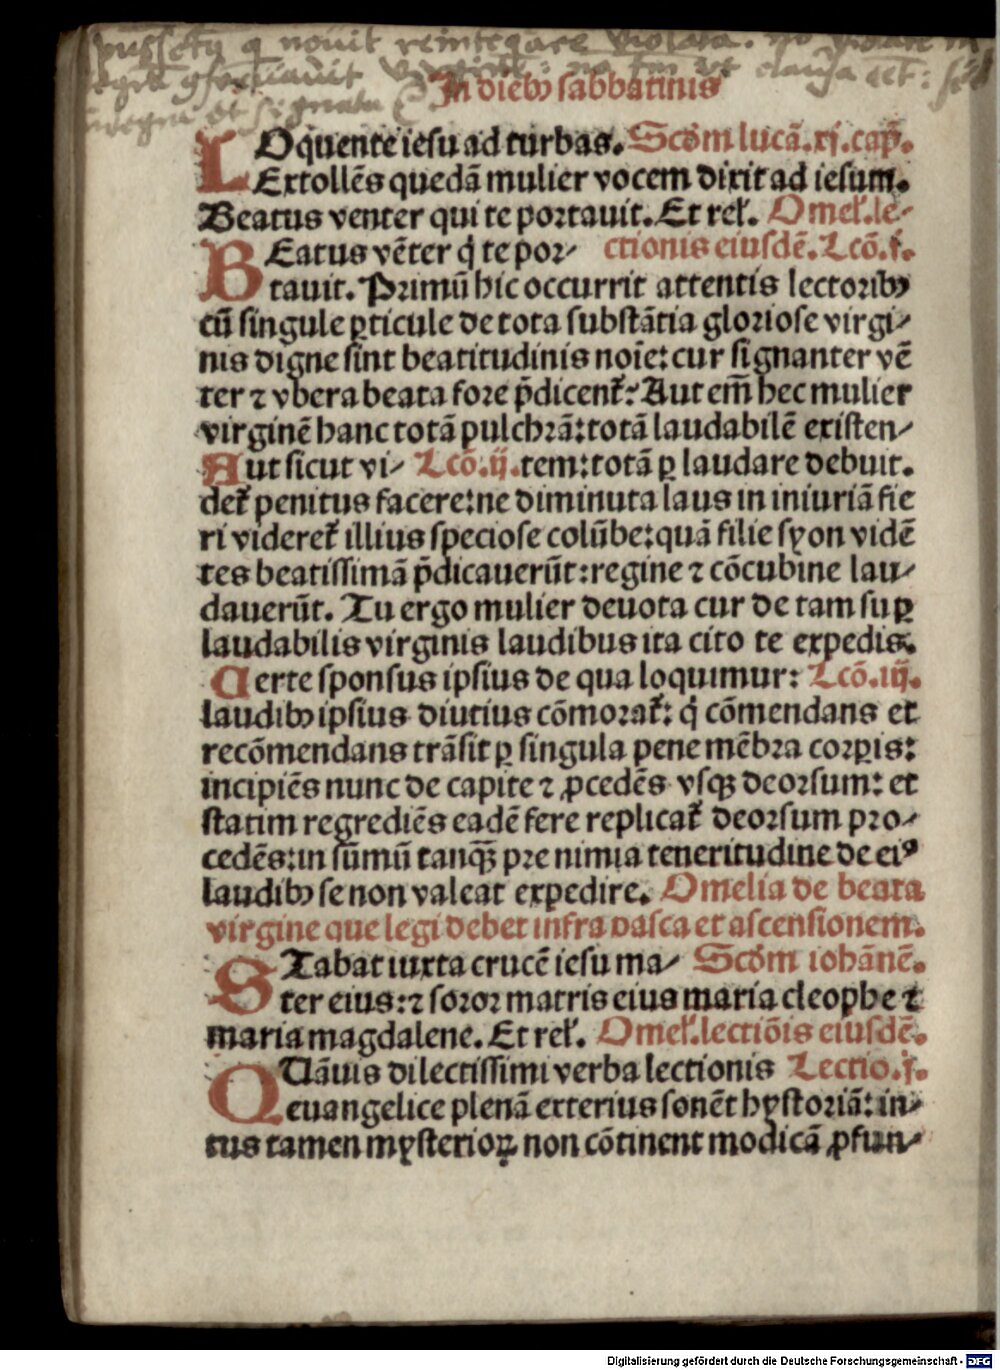 q̃ nouit reintegrare violata.
In dieb⁹ sabbatinis
LOquente iesu ad turbas. Scd̃m lucã.xj.cap̃.
Extollẽs quedã mulier vocem dixit ad iesum.
Beatus venter qui te portauit. Et rel̃. Omel̃.le-
BEatus vẽter q̇ te por- ctionis eiusdẽ. Lcõ.j.
tauit. Primũ hic occurrit attentis lectorib⁹
cũ singule ꝑticule de tota substãtia gloriose virgi-
nis digne sint beatitudinis noĩe: cur signanter vẽ
ter ⁊ vbera beata fore p̃dicent᷑? Aut em̃ hec mulier
virginẽ hanc totã pulchrã: totã laudabilẽ existen-
Aut sicut vi- Lcõ.ij. tem: totã ꝑ laudare debuit.
det᷑ penitus facere: ne diminuta laus in iniuriã fie
ri videret᷑ illius speciose colũbe: quã filie syon vidẽ
tes beatissimã p̃dicauerũt: regine ⁊ cõcubine lau-
dauerũt. Tu ergo mulier deuota cur de tam suꝑ
laudabilis virginis laudibus ita cito te expedis.
Certe sponsus ipsius de qua loquimur: Lcõ.iij.
laudib⁹ ipsius diutius cõmorat᷑: q̇ cõmendans et
recõmendans trãsit ꝑ singula pene mẽbra corꝑis:
incipiẽs nunc de capite ⁊ ꝓcedẽs vsqꝫ deorsum: et
statim regrediẽs eadẽ fere replicat᷑ deorsum pro-
cedẽs: in sũmũ tanqꝫ̃ pre nimia teneritudine de ei⁹
laudib⁹ se non valeat expedire. Omelia de beata
virgine que legi debet infra pasca et ascensionem.
STabat iuxta crucẽ iesu ma- Scd̃m iohãnẽ.
ter eius: ⁊ soror matris eius maria cleophe ⁊
maria magdalene. Et rel̃. Omel̃. lectiõis eiusdẽ.
QUãuis dilectissimi verba lectionis Lectio.j.
euangelice plenã exterius sonẽt hystoriã: in-
tus tamen mysterioꝝ non cõtinent modicã ꝓfun-
Digitalisierung gefördert durch die Deutsche Forschungsgemeinschaft - DFG